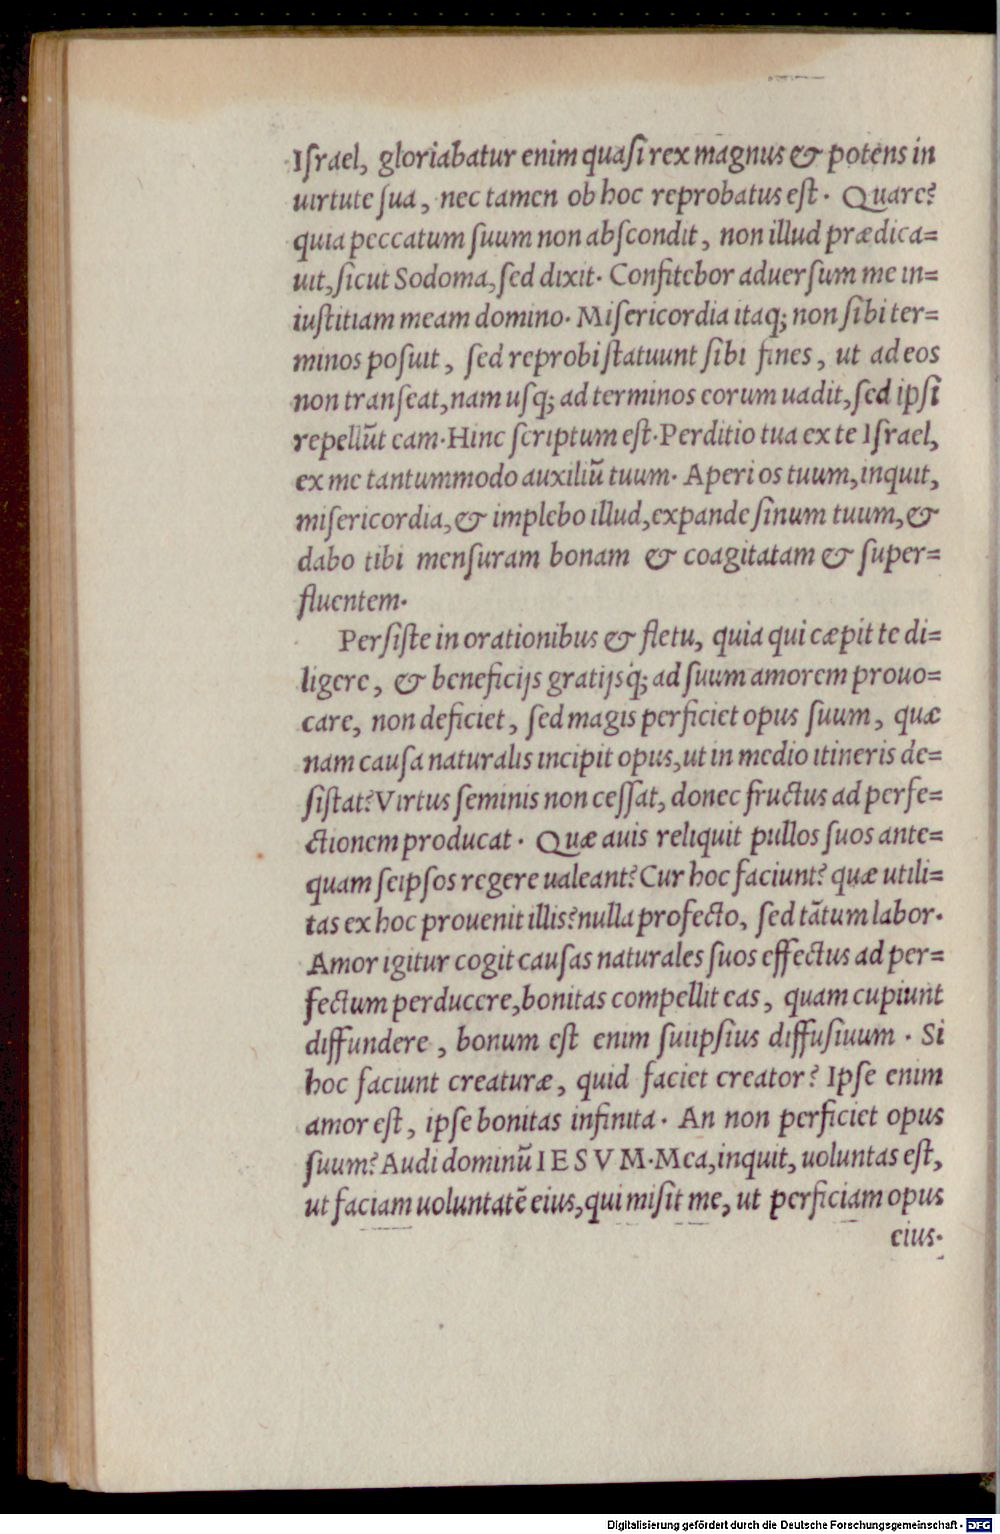 Iſrael, gloriabatur enim quaſi rex magnus & potens in
uirtute ſua, nec tamen ob hoc reprobatus eſt. Quare?
quia peccatum ſuum non abſcondit, non illud prædica=
uit, ſicut Sodoma, ſed dixit. Confitebor aduerſum me in=
iuſtitiam meam domino. Miſericordia itaq; non ſibi ter=
minos poſuit, ſed reprobi ſtatuunt ſibi fines, ut ad eos
non tranſeat, nam uſq; ad terminos eorum uadit, ſed ipſi
repellũt eam. Hinc ſcriptum eſt. Perditio tua ex te Iſrael,
ex me tantummodo auxiliũ tuum. Aperi os tuum, inquit,
miſericordia, & implebo illud, expande ſinum tuum, &
dabo tibi menſuram bonam & coagitatam & ſuper=
fluentem.
Perſiſte in orationibus & fletu, quia qui cæpit te di=
ligere, & beneficijs gratijsq́; ad ſuum amorem prouo=
care, non deficiet, ſed magis perficiet opus ſuum, quæ
nam cauſa naturalis incipit opus, ut in medio itineris de=
ſiſtat? Virtus ſeminis non ceſſat, donec fructus ad perfe=
ctionem producat. Quæ auis reliquit pullos ſuos ante=
quam ſeipſos regere ualeant? Cur hoc faciunt? quæ utili=
tas ex hoc prouenit illis? nulla profecto, ſed tãtum labor.
Amor igitur cogit cauſas naturales ſuos effectus ad per=
fectum perducere, bonitas compellit eas, quam cupiunt
diffundere, bonum eſt enim ſuiipſius diffuſiuum. Si
hoc faciunt creaturæ, quid faciet creator? Ipſe enim
amor eſt, ipſe bonitas infinita. An non perficiet opus
ſuum? Audi dominũ IESVM. Mea, inquit, uoluntas eſt,
ut faciam uoluntatẽ eius, qui miſit me, ut perficiam opus
eius.
Digitalisierung gefördert durch die Deutsche Forschungsgemeinschaft - DFG